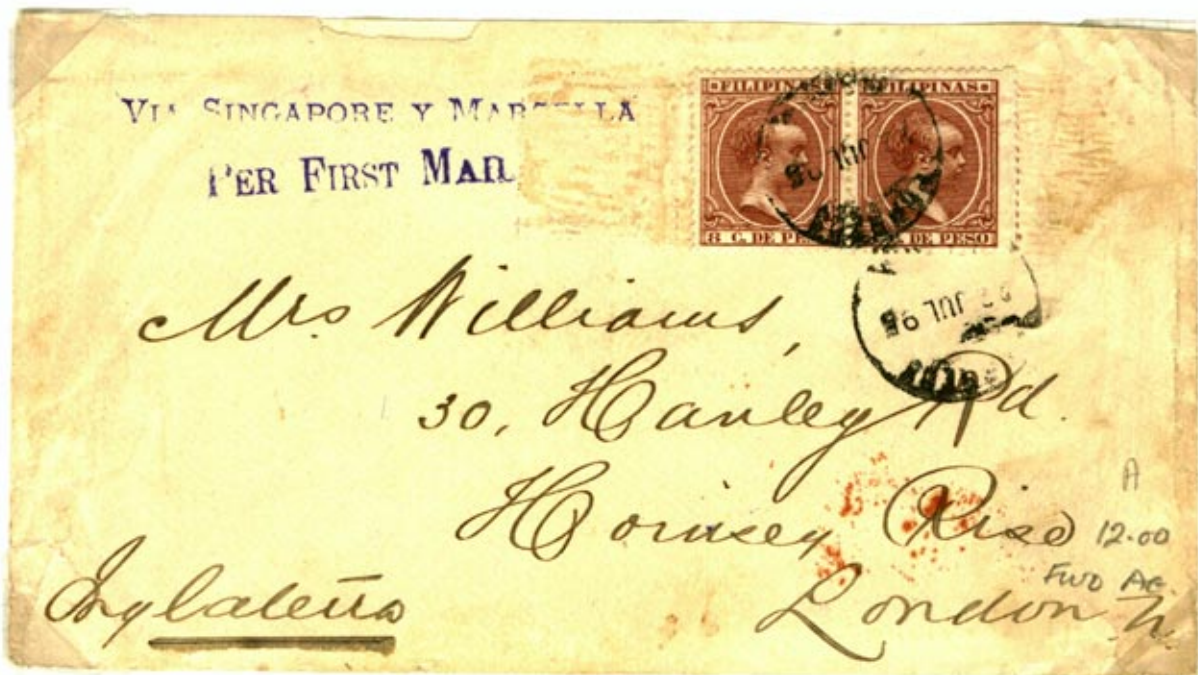 VIA SINGAPORE Y MARSELLA
PER FIRST MAIL
FILIPINAS FILIPINAS
8 C. DE PESO
JUL
JUL 9
Mrs Williams,
30, Hanley Rd.
Hornsey Rise
London N.
Inglaterra
A
12.00
FWD